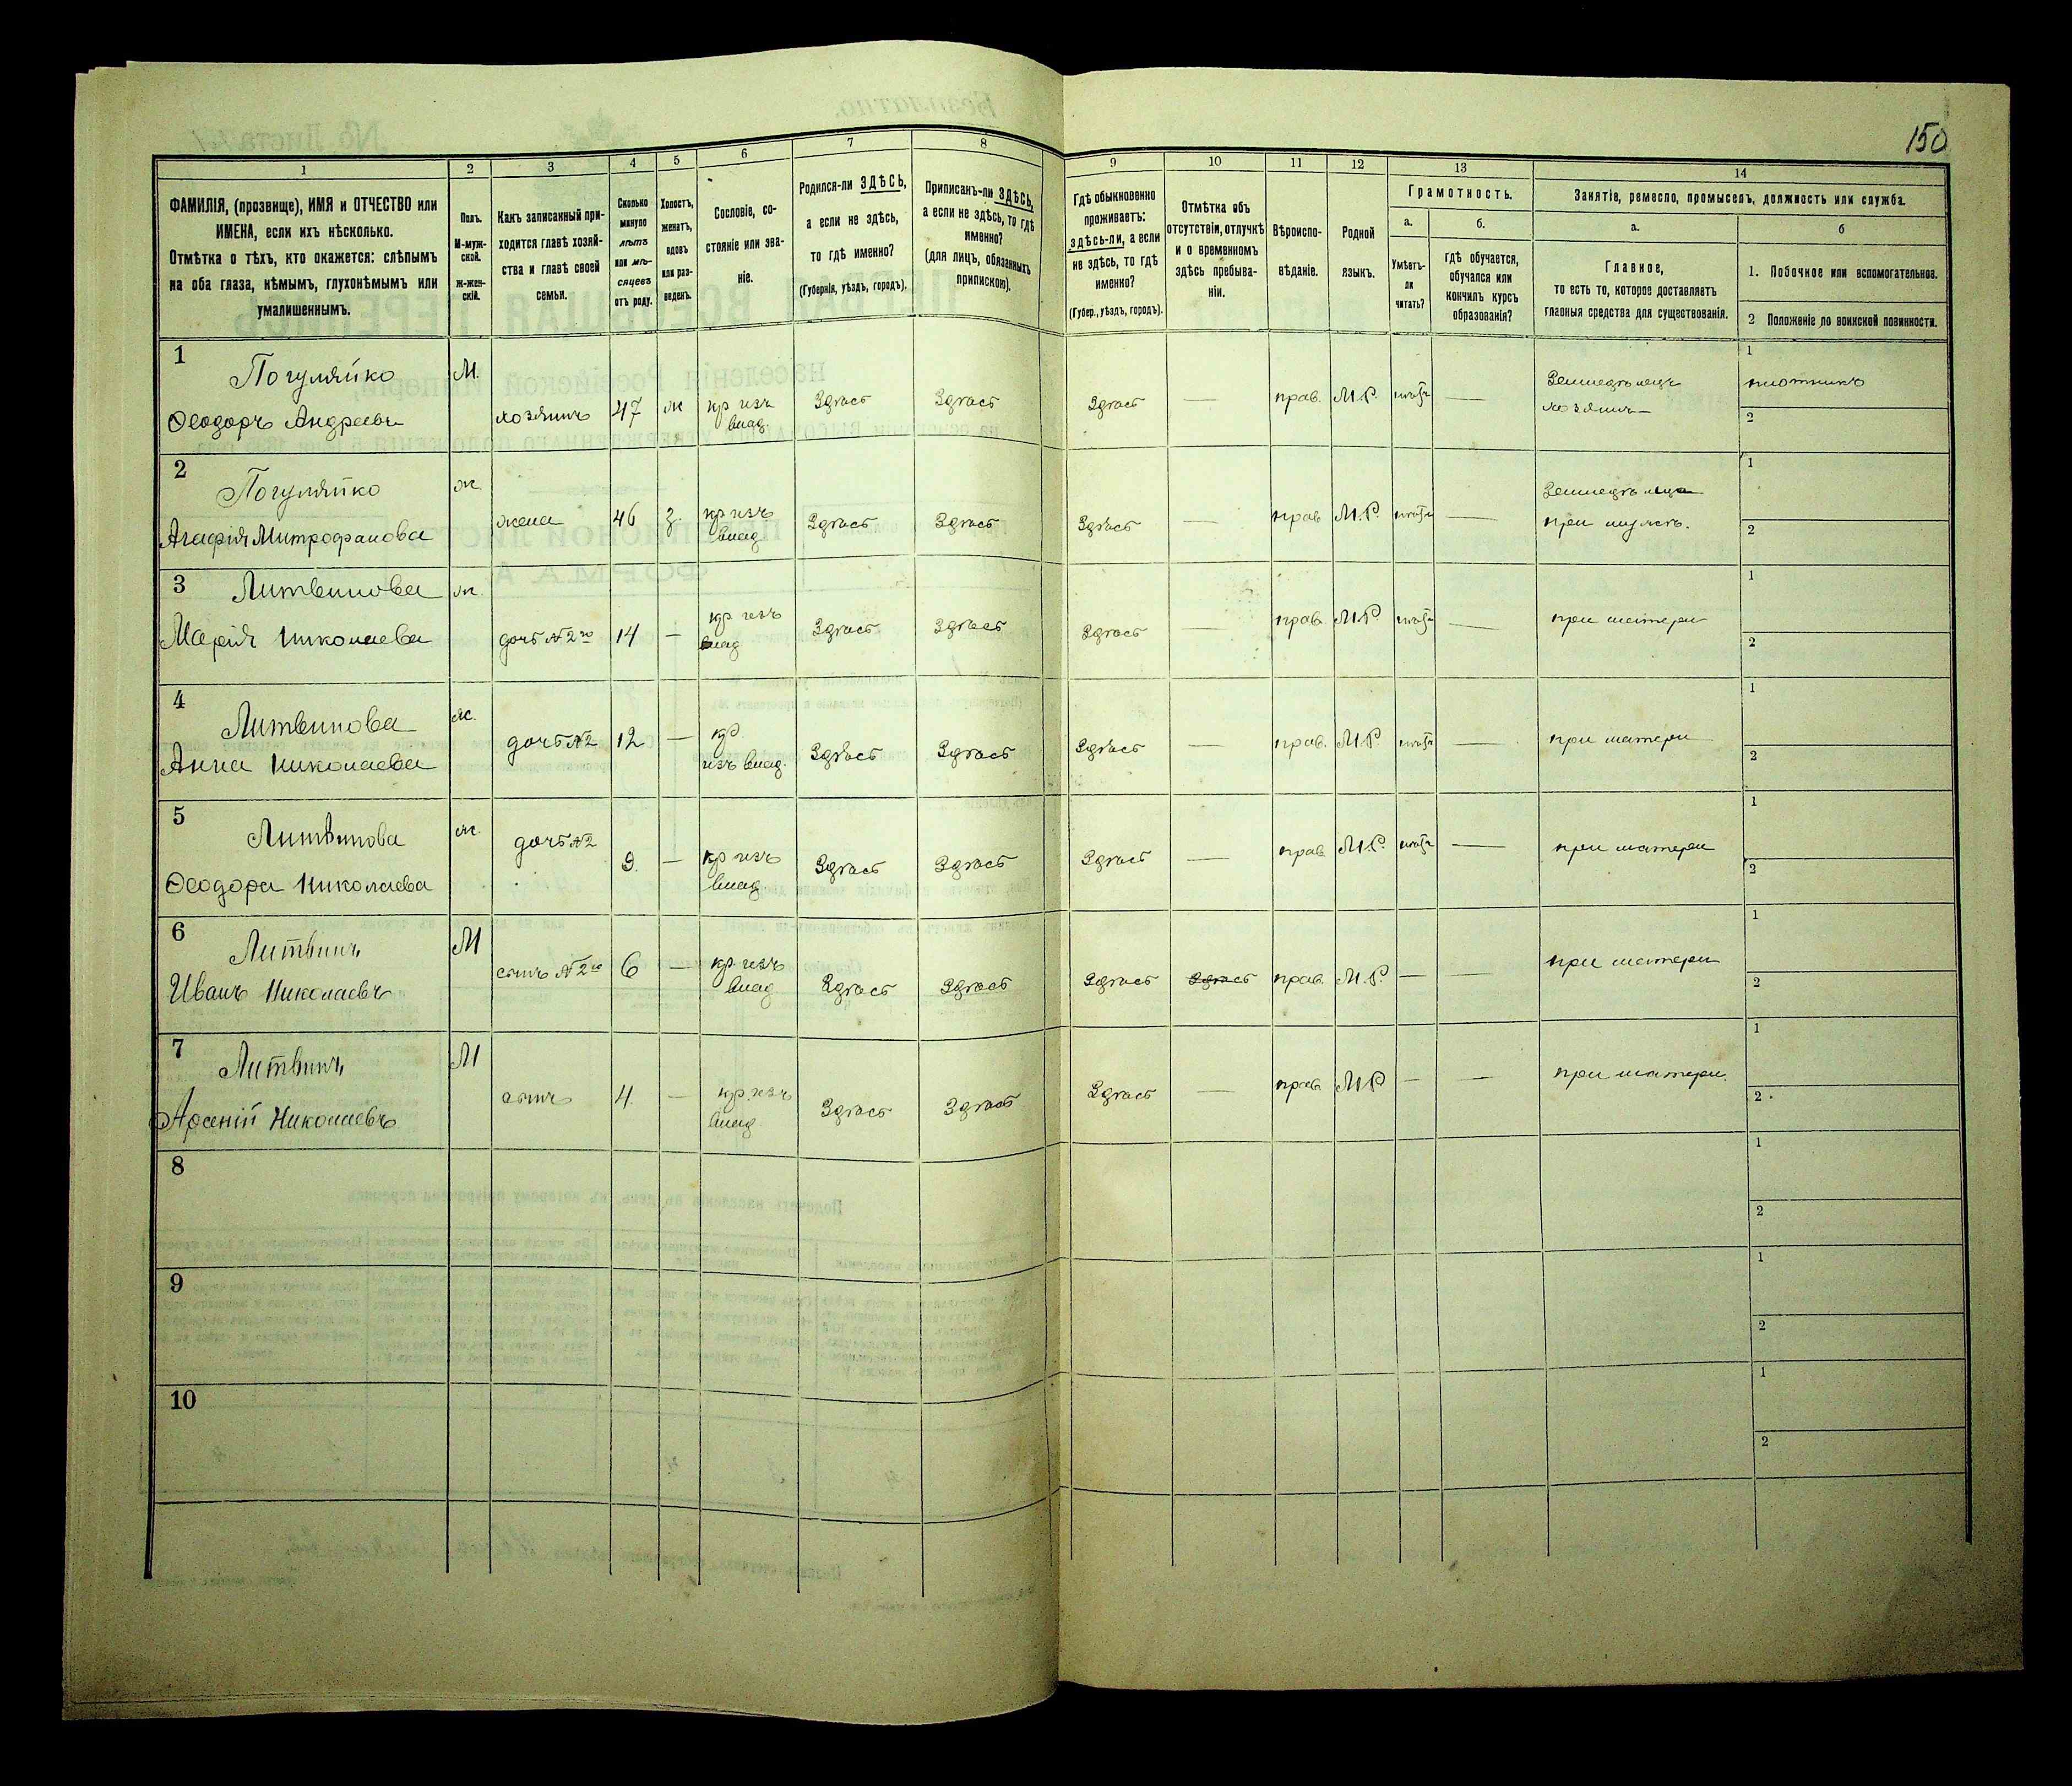 150
1
2
3
4
5
6
7
8
9
10
11
12
13
14
ФАМИЛІЯ, (прозвище), ИМЯ и ОТЧЕСТВО или
ИМЕНА, если ихъ нѣсколько.
Отмѣтка о тѣхъ, кто окажется: слѣпымъ
на оба глаза, нѣмымъ, глухонѣмымъ или
умалишеннымъ.
Полъ.
М-муж-
ской.
Ж-жен-
скій.
Какъ записанный при-
ходится главѣ хозяй-
ства и главѣ своей
семьи.
Сколько
минуло
лѣтъ
или мѣ-
сяцевъ
отъ роду.
Холостъ,
женатъ,
вдовъ
или раз-
веденъ.
Сословіе, со-
стояніе или зва-
ніе.
Родился-ли ЗДѢСЬ,
а если не здѣсь,
то гдѣ именно?
(Губернія, уѣздъ, городъ).
Приписанъ-ли ЗДѢСЬ,
а если не здѣсь, то гдѣ
именно?
(для лицъ, обязанныхъ
припискою).
Гдѣ обыкновенно
проживаетъ:
здѣсь-ли, а если
не здѣсь, то гдѣ
именно?
(Губер., уѣздъ, городъ).
Отмѣтка объ
отсутствіи, отлучкѣ
и о временномъ
здѣсь пребыва-
ніи.
Вѣроиспо-
вѣданіе.
Родной
языкъ.
Грамотность.
а.
Умѣетъ-
ли
читать?
б.
гдѣ обучается,
обучался или
кончилъ курсъ
образованія?
Занятіе, ремесло, промыселъ, должность или служба.
а.
Главное,
то есть то, которое доставляетъ
главныя средства для существованія.
б
1. Побочное или вспомогательное.
2 Положеніе по воинской повинности.
1
Погуляйко
Ѳеодоръ Андреевъ
М.
хозяинъ
47
ж
кр изъ
влад.
Здѣсь
Здѣсь
Здѣсь
—
прав.
М.Р.
—
Земледѣлецъ
хозяинъ
1
плотникъ
2
2
Погуляйко
Агафія Митрофанова
ж.
жена
46
з.
кр изъ
влад
Здѣсь
Здѣсь
Здѣсь
—
прав
М.Р.
—
при мужѣ.
1
2
3
Литвинова
Марія Николаева
ж.
дочь №2го
14
—
кр изъ
влад
Здѣсь
Здѣсь
Здѣсь
—
прав.
М.Р
—
при матери
1
2
4
Литвинова
Анна Николаева
ж.
дочь №2
12
—
кр.
изъ влад.
Здѣсь
Здѣсь
Здѣсь
—
прав.
М.Р.
—
при матери
1
2
5
Литвинова
Ѳеодора Николаева
ж.
дочь №2
9.
—
кр изъ
влад
Здѣсь
Здѣсь
Здѣсь
—
прав
М.Р.
—
при матери
1
2
6
Литвинъ
Иванъ Николаевъ
М
сынъ №2го
6
—
кр. изъ
влад
Здѣсь
Здѣсь
Здѣсь
Здѣсь
прав.
М.Р.
—
—
при матери
1
2
7
Литвинъ
Арсеній Николаевъ
М
сынъ
4.
—
кр. изъ
влад
Здѣсь
Здѣсь
Здѣсь
—
прав
М.Р
—
—
при матери.
1
2
8
1
2
9
1
2
10
1
2